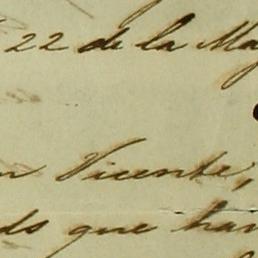 22 de la Ma
n Vicente,
ds que han